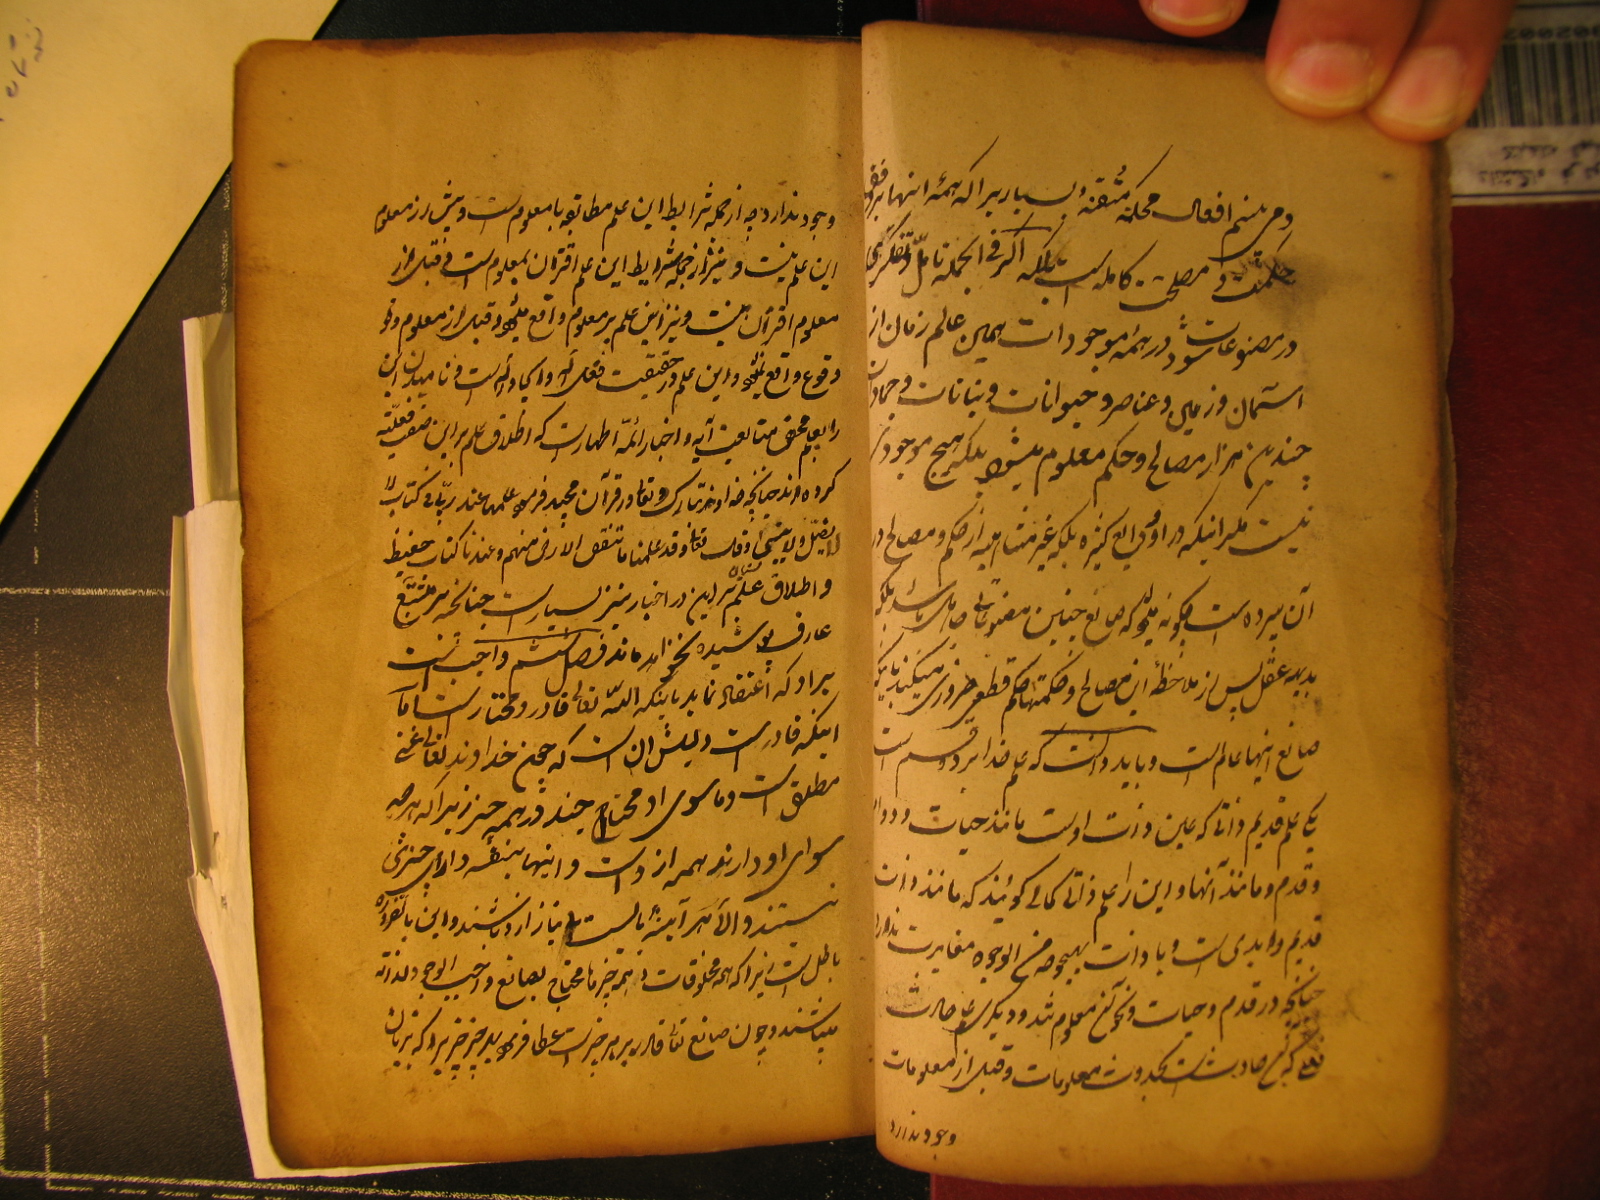 و می بینم افعال محکمه متقنه بسیار زیرا که همهٔ اینها بر وفق
حکمت و مصلحت کامله است بلکه اگر فی الجمله تامل و تفکر
در مصنوعات شود در همه موجودات همین عالم زمان از
آسمان و زمین و عناصر و حیوانات و نباتات و جمادات
چندین هزار مصالح و حکم معلوم میشود بلکه هیچ موجود
نیست مگر اینکه در او ودایع کثیره بلکه غیر متناهیه از حکم و مصالح در
آن سپرده است چگونه میشود که صانع چنین مصنوعات جاهل باشد بلکه
بدیهه عقل پس از ملاحظهٔ این مصالح و حکمتها حکم قطعی ضروری میکند باینکه
صانع اینها عالم است و باید دانست که علم خدا بر دو قسم است
یکی علم قدیم ذاتی که عین ذات اوست مانند حیات و
و قدم و مانند آنها و این را علم ذاتی کمالی گویند که مانند ذات
قدیم و ابدی است و با ذات بهیچوجه من الوجوه مغایرت ندارد
چنانچه در قدم و حیات و نحو آن معلوم شد و دیگری علم حادث
فعلی که حادث است بحدوث معلومات و قبل از معلومات
وجود ندارد
وجود ندارد چه از جمله شرایط این علم مطابقه با معلوم است و پیش از معلوم
این علم نیست و نیز از جمله شرایط این علم اقتران بمعلوم است و قبل از
معلوم اقتران نیست و نیز این علم بر معلوم واقع میشود و قبل از معلوم
وقوع واقع نمیشود و این علم در حقیقت فعل الله و ایجاد الله است و نامیدن این
را بعلم محض متابعت آیه و اخبار ائمه اطهار است که اطلاق علم بر این صفت فعلیه
کرده اند چنانچه خداوند تبارک و تعالی در قرآن مجید فرموده علمها عند ربی فی کتاب لا
یضل ربی و لا ینسی و قال تعالی قد علمنا ما تنقص الارض منهم و عندنا کتاب حفیظ
و اطلاق علم بر این در اخبار نیز بسیار است چنانچه بر متتبع
عارف پوشیده نخواهد ماند فصل ششم واجب است
بر او که اعتقاد نماید باینکه الله تعالی قادر و مختار است اما
اینکه قادر است دلیلش آن است که چون خداوند تعالی غنی
مطلق است و ما سوای او محتاج در همه چیز زیرا که هر چه
سوای او دارند همه از او است و اینها بنفسه دارای چیزی
نیستند و الا هر آینه بایست بی نیاز از او باشند و این بالضروره
باطل است زیرا که همه مخلوقات در همه چیزها محتاج بصانع واجب الوجود لذاته
میباشند و چون صانع تعالی قادر بر هر چیز است عطا فرموده بهر چیز چیزی را که بزبان